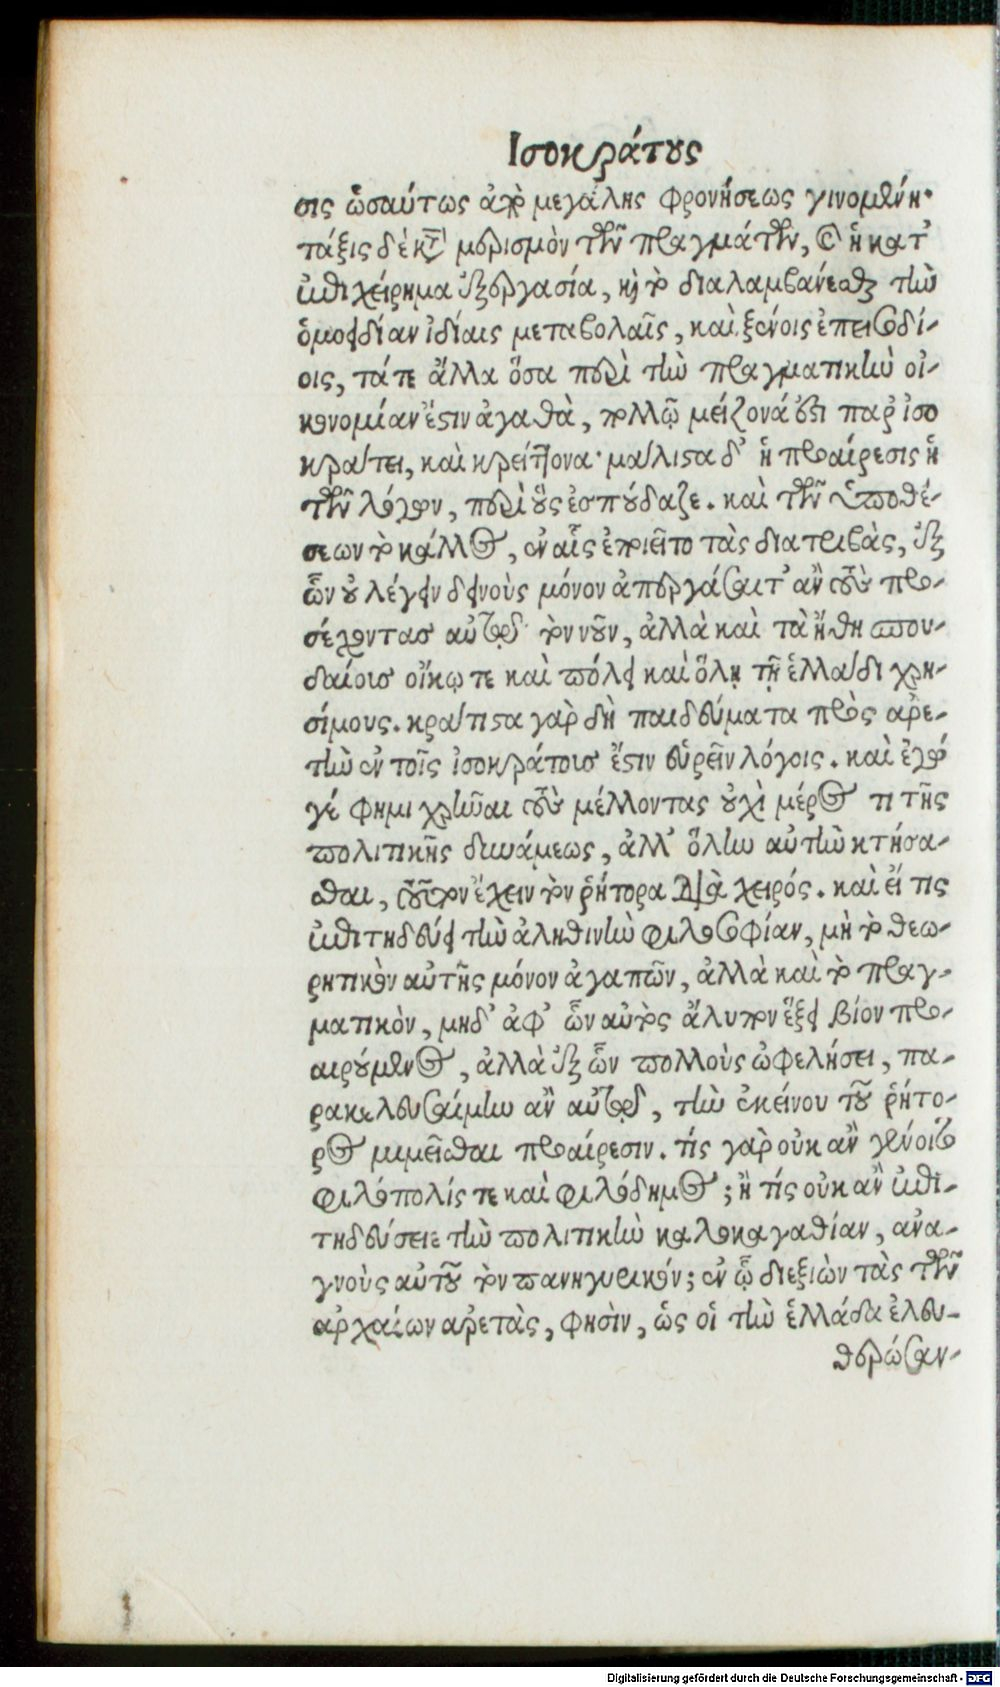 Ισοκράτους
σις ὡσαύτως ἀπὸ μεγάλης φρονήσεως γινομένη·
τάξις δὲ κỳ μερισμὸν τῶν πραγμάτων, καὶ ἡ κατ’
ἐπιχείρημα ἐξεργασία, καὶ τὸ διαλαμβάνεσθαι τὴν
ὁμοείδιαν ἰδίαις μεταβολαῖς, καὶ ξένοις ἐπεισοδί-
οις, τά τε ἄλλα ὅσα περὶ τὴν πραγματικὴν οἰ-
κονομίαν ἔστιν ἀγαθὰ, πολλῷ μείζονά ἐστι παρ’ ἰσο
κράτει, καὶ κρείττονα· μάλιστα δ’ ἡ προαίρεσις ἡ
τῶν λόγων, περὶ οὓς ἐσπούδαζε. καὶ τῶν ὑποθέ-
σεων τὸ κάλλος, ἐν αἷς ἐποιεῖτο τὰς διατριβὰς, ἐξ
ὧν οὐ λέγειν δεινοὺς μόνον ἀπεργάσαιτ’ ἂν τοὺς προ-
σέχοντας αὐτῷ τὸν νοῦν, ἀλλὰ καὶ τὰ ἤθη σπου-
δαίους οἴκῳ τε καὶ πόλει καὶ ὅλῃ τῇ ἑλλάδι χρη-
σίμους. κράτιστα γὰρ δὴ παιδεύματα πρὸς ἀρε-
τὴν ἐν τοῖς ἰσοκράτους ἔστιν εὑρεῖν λόγοις. καὶ ἐγώ
γέ φημι χρῆναι τοὺς μέλλοντας οὐχὶ μέρος τι τῆς
πολιτικῆς δυνάμεως, ἀλλ’ ὅλην αὐτὴν κτήσα-
σθαι, τοῦτον ἔχειν τὸν ῥήτορα διὰ χειρός. καὶ εἴ τις
ἐπιτηδεύει τὴν ἀληθινὴν φιλοσοφίαν, μὴ τὸ θεω-
ρητικὸν αὐτῆς μόνον ἀγαπῶν, ἀλλὰ καὶ τὸ πραγ-
ματικὸν, μηδ’ ἀφ’ ὧν αὐτὸς ἄλυπον ἕξει βίον προ-
αιρούμενος, ἀλλὰ ἐξ ὧν πολλοὺς ὠφελήσει, πα-
ρακελευσαίμην ἂν αὐτῷ, τὴν ἐκείνου τοῦ ῥήτο-
ρος μιμεῖσθαι προαίρεσιν. τίς γὰρ οὐκ ἂν γένοιτο
φιλόπολίς τε καὶ φιλόδημος; ἢ τίς οὐκ ἂν ἐπι-
τηδεύσειε τὴν πολιτικὴν καλοκαγαθίαν, ἀνα-
γνοὺς αὐτοῦ τὸν πανηγυρικόν; ἐν ᾧ διεξιὼν τὰς τῶν
ἀρχαίων ἀρετὰς, φησὶν, ὡς οἱ τὴν ἑλλάδα ἐλευ-
θερώσαν-
Digitalisierung gefördert durch die Deutsche Forschungsgemeinschaft - DFG